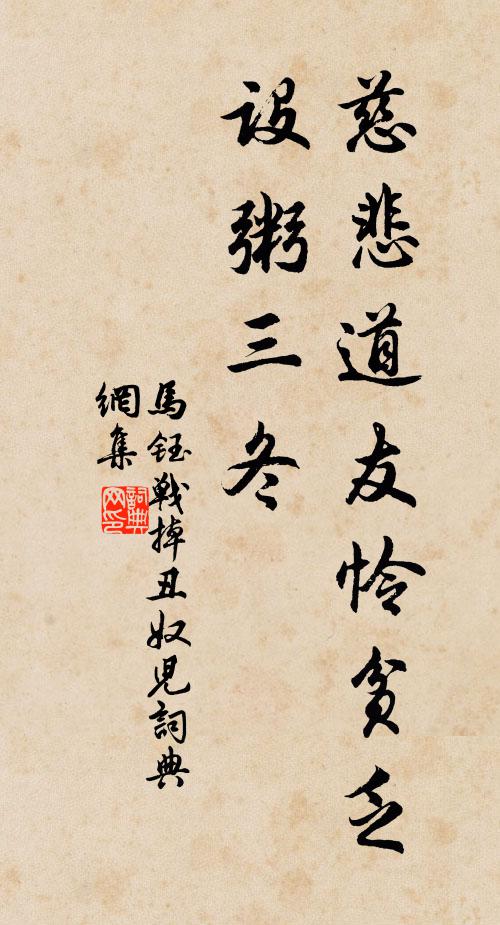 慈悲道友怜貧乏
設粥三冬
馬鈺戰掉丑奴兒詞典
網集
詞典
网印